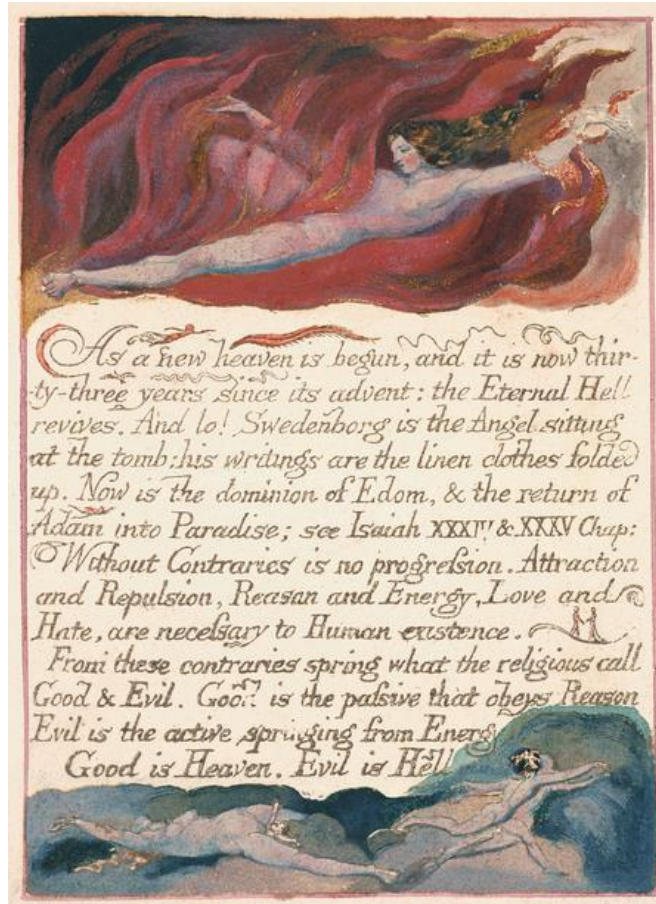 As a new heaven is begun, and it is now thir-
ty-three years since its advent: the Eternal Hell
revives. And lo! Swedenborg is the Angel sitting
at the tomb: his writings are the linen clothes folded
up. Now is the dominion of Edom, & the return of
Adam into Paradise; see Isaiah XXXIV & XXXV Chap:
Without Contraries is no progreſsion. Attraction
and Repulsion, Reason and Energy, Love and
Hate, are neceſsary to Human existence.
From these contraries spring what the religious call
Good & Evil. Good is the paſsive that obeys Reason
Evil is the active springing from Energy
Good is Heaven. Evil is Hell